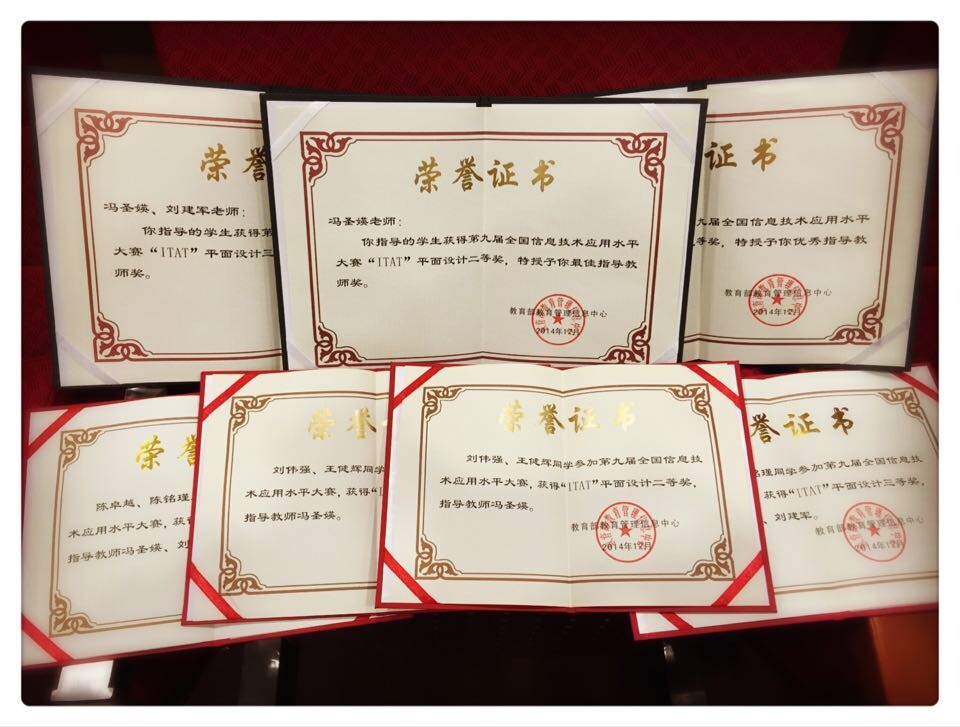 荣誉
冯圣媖、刘建军老师：
你指导的学生获得第
大赛“ITAT”平面设计三
师奖。
荣誉证书
冯圣媖老师：
你指导的学生获得第九届全国信息技术应用水平
大赛“ITAT”平面设计二等奖，特授予你最佳指导教
师奖。
教育部教育管理信息中心
2014年12月
证书
九届全国信息技术应用水平
等奖，特授予你优秀指导教
教育部教育管理信息中心
2014年12月
荣誉
陈卓越、陈铭瑾
术应用水平大赛，获
指导教师冯圣媖、刘
荣誉
刘伟强、王健辉同学
术应用水平大赛，获得“
指导教师冯圣媖。
荣誉证书
刘伟强、王健辉同学参加第九届全国信息技
术应用水平大赛，获得“ITAT”平面设计二等奖，
指导教师冯圣媖。
教育部教育管理信息中心
2014年12月
誉证书
铭瑾同学参加第九届全国信息技
获得“ITAT”平面设计三等奖，
、刘建军。
教育部教育管理信息中心
2014年12月